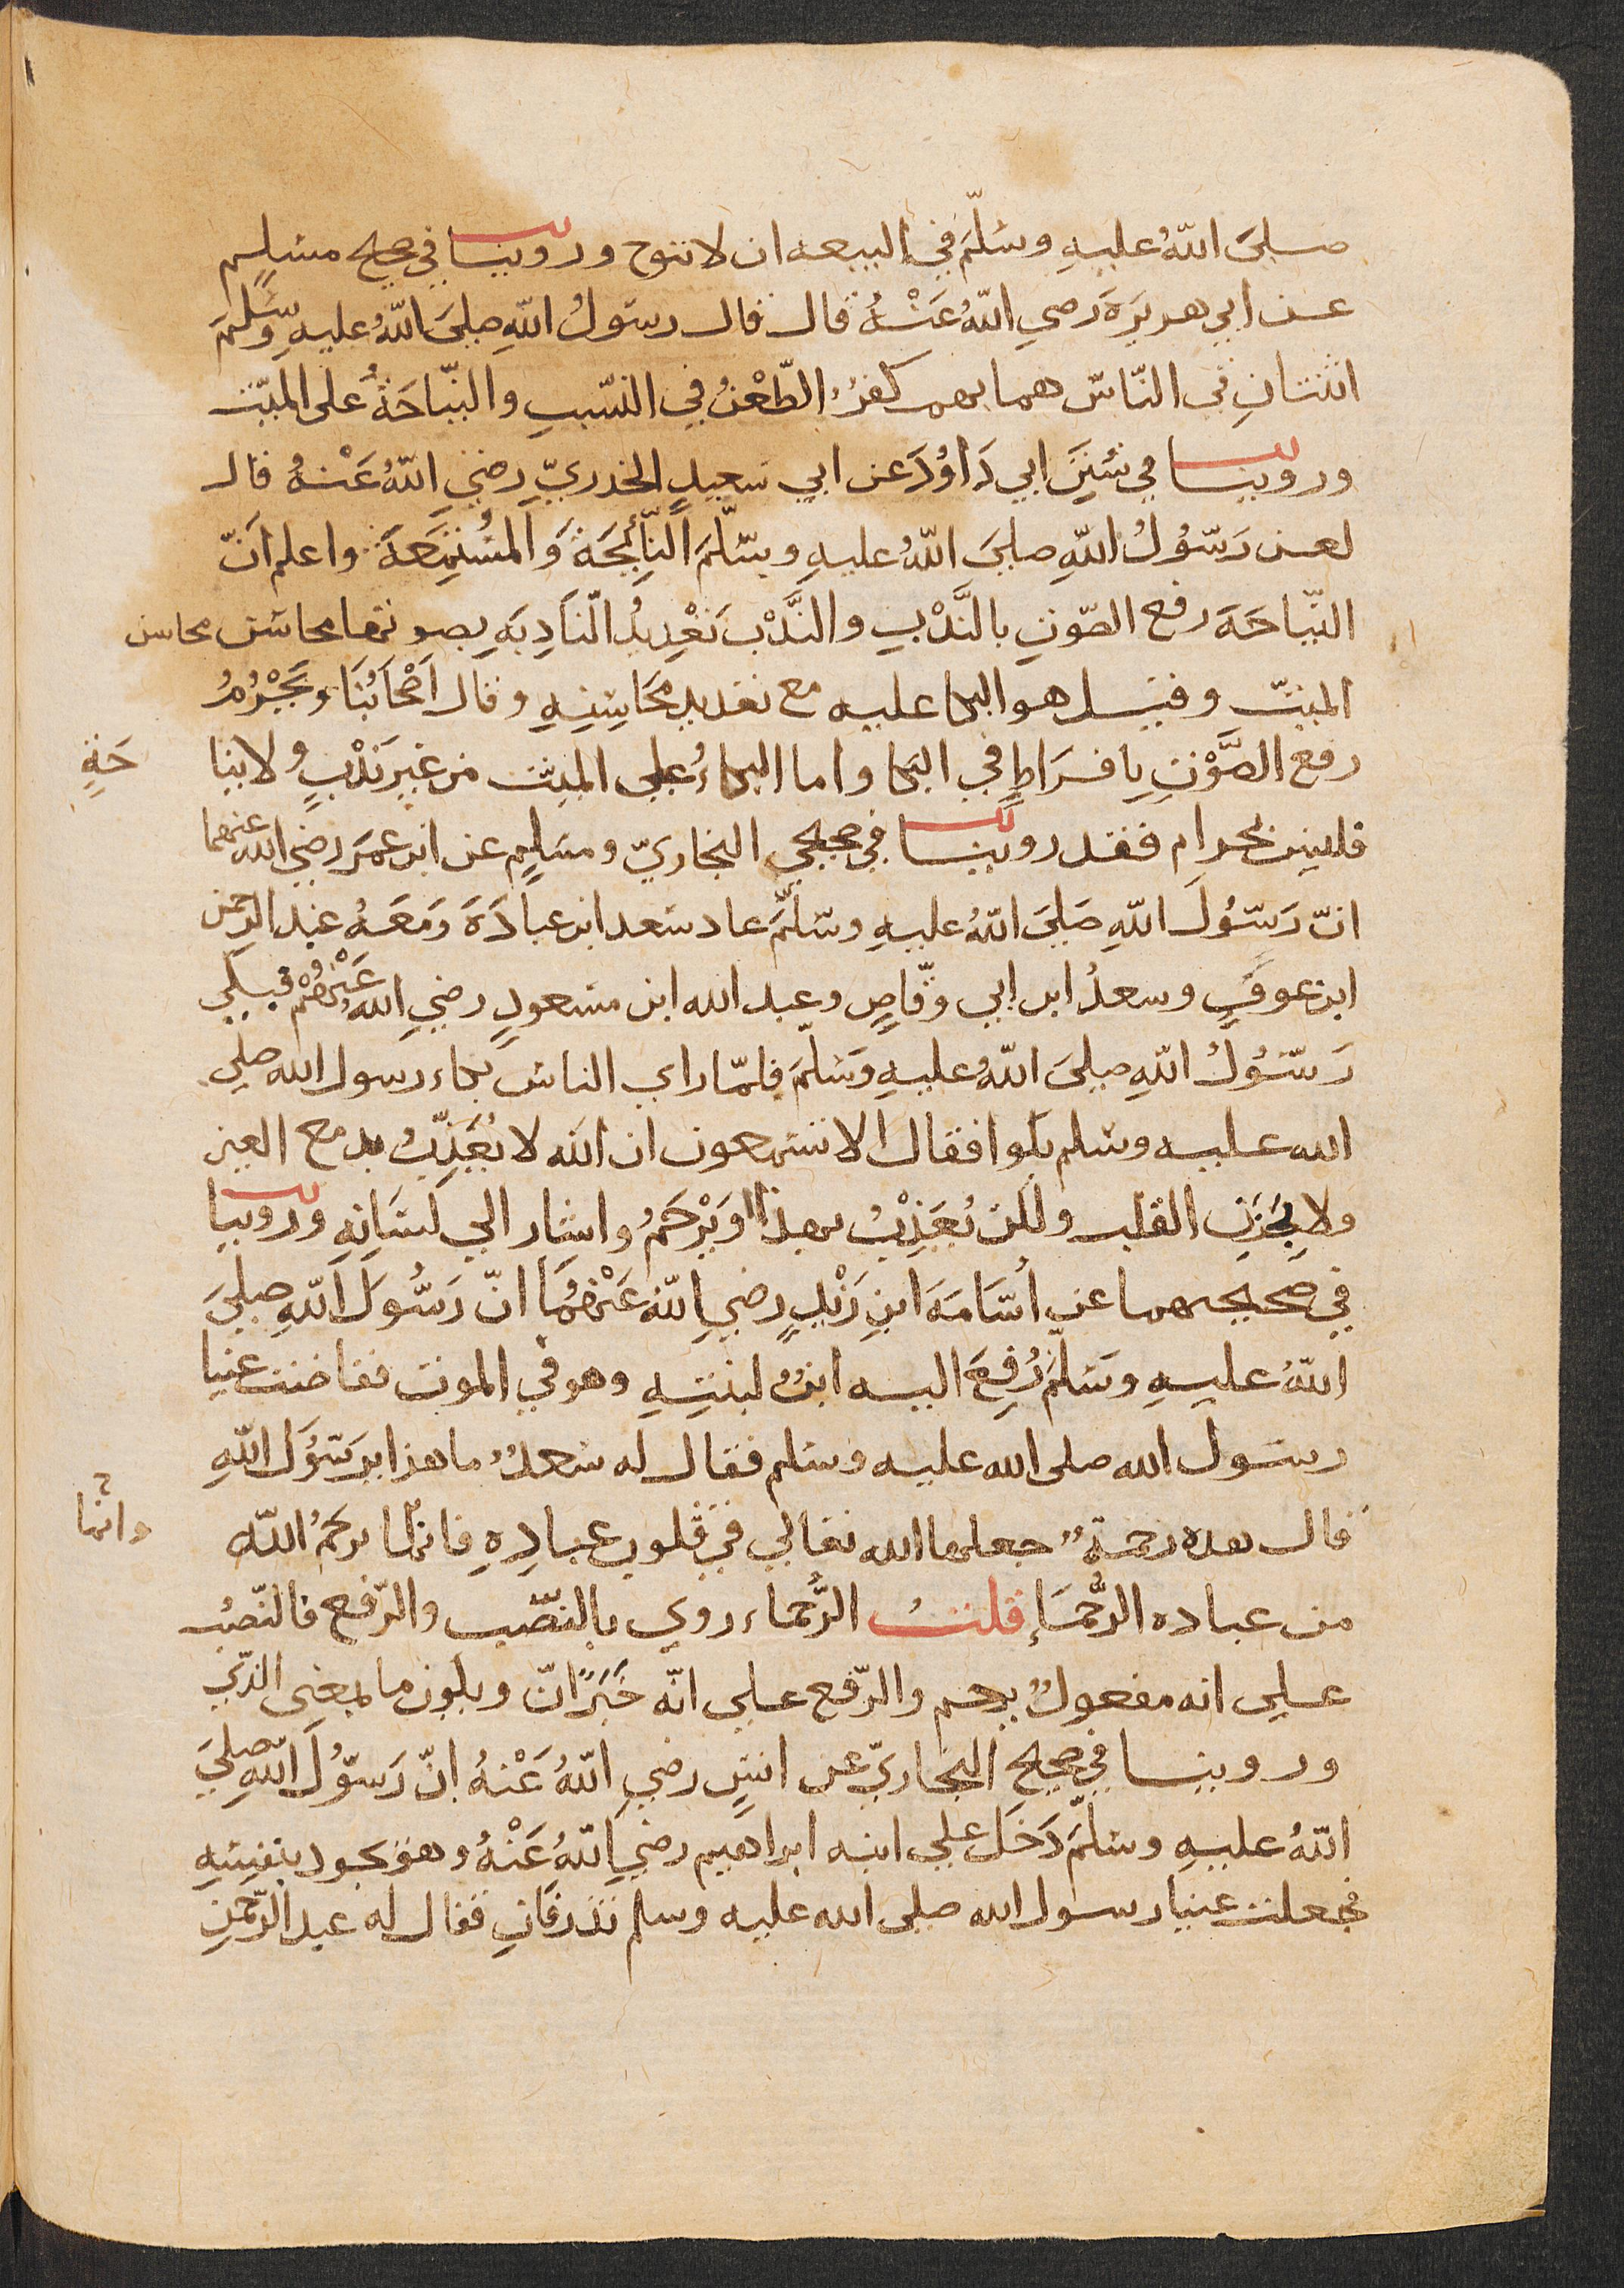 صلىَ اللّهُ عليهِ وسَلّمَ في البيعه ان لا ننوح وروينا في صحيح مسْلمٍ
عن ابي هريرَةَ رضي اللّهُ عَنْهُ قال قال رسَولُ اللّهِ صلىَ اللّهُ عليهِ وسَلمَ
اثنتانِ في النّاس هما بهم كفرٌ الطّعْنُ في النسَبِ والنّياحَةُ على الميّت
وروينا في سُننَِ ابي دَاوُدَ عن ابي سَعيدٍ الخدريّ رضيَ اللّهُ عَنْهُ قال
لعن رَسُولُ اللّهِ صلىَ اللّهُ عليهِ وسَلّمَ النّائِحَةَ وَالمُسْتمِعَةَ واعلم انّ
النّياحَةَ رفع الصّوتِ بالنَّدْبِ والنَّدْب تَعْدِيدُ النّادِبَهِ بصوتها محاسَن محاسن
الميتّ وقيل هو البكا عليه مع تعديد محَاسِنِهِ وقال اَصْحَابُنَا ويَحْرُمُ
رفع الصَّوْتِ بِافرَاطٍ في البكا واما البكاءُ على الميت من غيرِ نَدْبٍ ولا نيا
حَةٍ
فليسَ بحرام فقد روينا في صحيحي البخاريّ ومسَلمٍ عن ابن عمَرَ رضي الله عنهما
انّ رَسُولَ اللّهِ صَلىَ اللّهُ عليهِ وسَلّمَ عاد سَعد ابن عبادَةَ وَمَعَهُ عَبد الرحمن
ابن عوفٍ وسعدُ ابن ابي وقّاصٍ وعبد الله ابن مسَعودٍ رضي الله عَنْهُمْ فبكىَ
رَسُولُ اللّهِ صلىَ اللّهُ عليهِ وَسَلّمَ فلمّا راي الناسَ بكاء رسول الله صلى
الله عليه وسَلم بكوا فقال الا تسَمعون ان الله لا يُعَذّبُ بدمع العين
ولا بحزَنِ القلب ولكن يُعَذِبُ بهذا اوَ يَرْحَمُ واشار الي لسَانِهِ وروينا
في صَحيحيهما عن اُسَامَةَ ابنِ زَيْدٍ رضي اللّهُ عَنْهُمَا انّ رَسُولَ اللّهِ صلىَ
اللّهُ عليهِ وسَلّمَ رُفعَ اليه ابنُ لبنتِهِ وهو في الموت ففاضت عَينا
رسَول الله صلى الله عليه وسَلم فقال له سَعدٌ ما هذا يا رسَوُلَ اللّهِ
قال هذه رحمَةٌ جعلها الله تعالي في قلوبِ عبادِهِ فانما يرحَمُ اللّه
وانما
من عباده الرُّحَمَاء قلت الرُّحَماء روي بالنصْب والرّفع فالنّصْبُ
على انه مفعولُ يرحم والرّفع على انّه خَبَرُ انّ ويكون ما بمعنى الذيّ
وروينا في صحيح البخاريّ عن انسٍ رضي اللّهُ عَنْهُ انّ رَسُولَ اللّهِ صلىَ
اللّهُ عليهِ وسَلّمَ دَخَلَ علي ابنه ابراهيم رضي اللّهُ عَنْهُ وهوَ يجود بنفسِهِ
فجعلت عينا رسول الله صلى الله عليه وسلم تذرفَانِ فقال له عبد الرّحمنِ